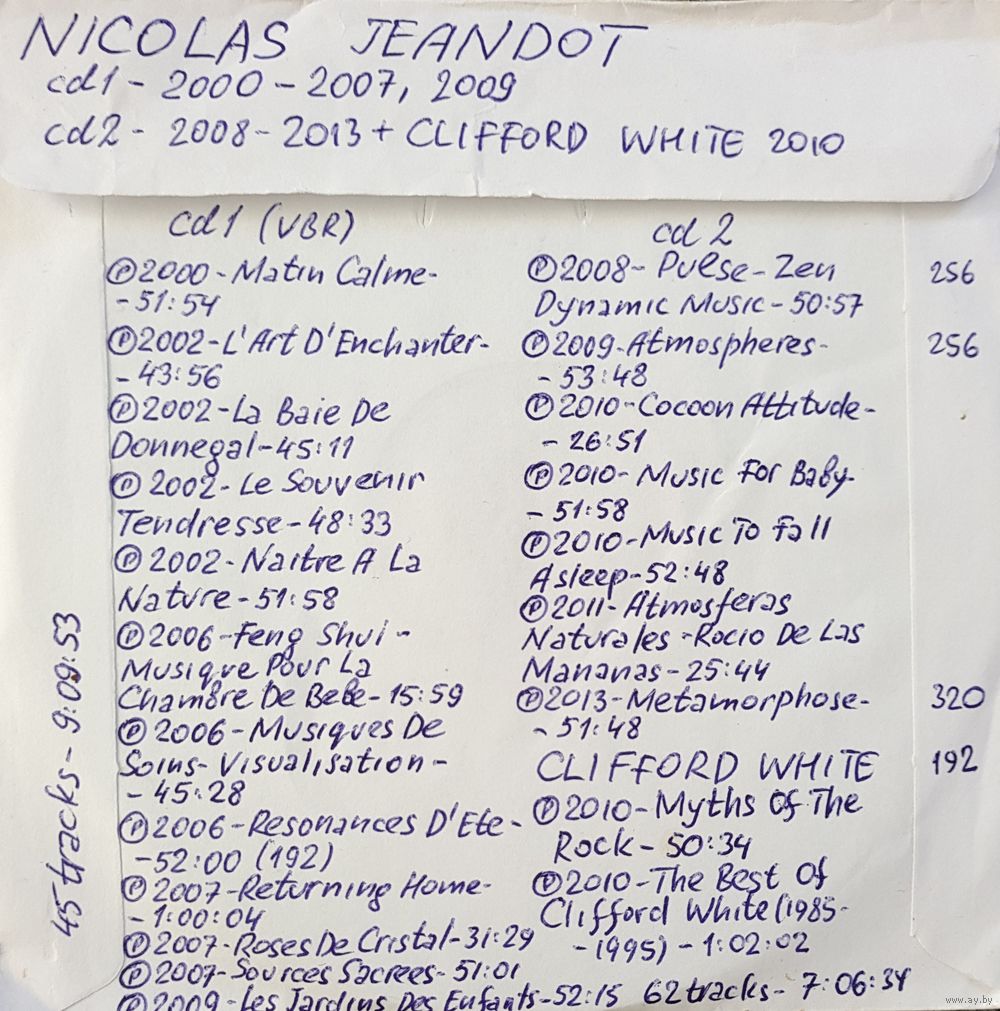 NICOLAS JEANDOT
cd1 - 2000 - 2007, 2009
cd2 - 2008 - 2013 + CLIFFORD WHITE 2010
cd1 (VBR)
Ⓟ2000 - Matin Calme -
- 51:54
Ⓟ2002 - L'Art D'Enchanter -
- 43:56
Ⓟ2002 - La Baie De
Donnegal - 45:11
Ⓟ2002 - Le Souvenir
Tendresse - 48:33
Ⓟ2002 - Naitre A La
Nature - 51:58
Ⓟ2006 - Feng Shui -
Musique Pour La
Chambre De Bebe - 15:59
Ⓟ2006 - Musiques De
Soins - Visualisation -
- 45:28
Ⓟ2006 - Resonances D'Ete -
- 52:00 (192)
Ⓟ2007 - Returning Home -
- 1:00:04
Ⓟ2007 - Roses De Cristal - 31:29
Ⓟ2007 - Sources Sacrees - 51:01
Ⓟ2009 - Les Jardins Des Enfants - 52:15
45 tracks - 9:09:53
cd2
Ⓟ2008 - Pulse - Zen 256
Dynamic Music - 50:57
Ⓟ2009 - Atmospheres - 256
- 53:48
Ⓟ2010 - Cocoon Attitude -
- 26:51
Ⓟ2010 - Music For Baby -
- 51:58
Ⓟ2010 - Music To Fall
Asleep - 52:48
Ⓟ2011 - Atmosferas
Naturales - Rocio De Las
Mananas - 25:44
Ⓟ2013 - Metamorphose - 320
- 51:48
CLIFFORD WHITE 192
Ⓟ2010 - Myths Of The
Rock - 50:34
Ⓟ2010 - The Best Of
Clifford White (1985 -
- 1995) - 1:02:02
62 tracks - 7:06:34
www.ay.by